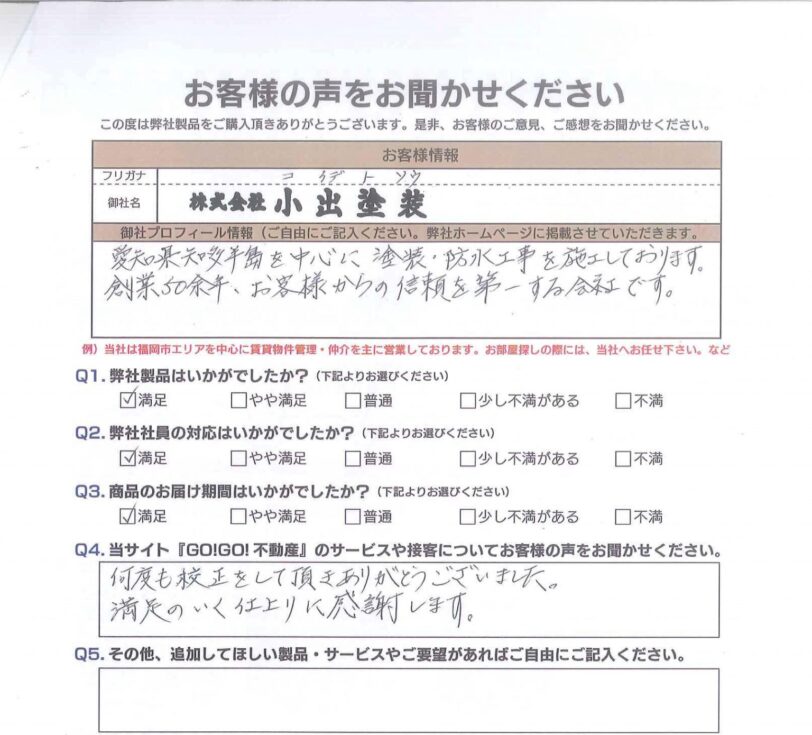 お客様の声をお聞かせください
この度は弊社製品をご購入頂きありがとうございます。是非、お客様のご意見、ご感想をお聞かせください。
お客様情報
フリガナ コイデトソウ
御社名 株式会社 小出塗装
御社プロフィール情報（ご自由にご記入ください。弊社ホームページに掲載させていただきます。
愛知県知多半島を中心に塗装・防水工事を施工しております。
創業50余年、お客様からの信頼を第一する会社です。
例）当社は福岡市エリアを中心に賃貸物件管理・仲介を主に営業しております。お部屋探しの際には、当社へお任せ下さい。など
Q1. 弊社製品はいかがでしたか？（下記よりお選びください）
☑満足 □やや満足 □普通 □少し不満がある □不満
Q2. 弊社社員の対応はいかがでしたか？（下記よりお選びください）
☑満足 □やや満足 □普通 □少し不満がある □不満
Q3. 商品のお届け期間はいかがでしたか？（下記よりお選びください）
☑満足 □やや満足 □普通 □少し不満がある □不満
Q4. 当サイト『GO!GO! 不動産』のサービスや接客についてお客様の声をお聞かせください。
何度も校正をして頂きありがとうございました。
満足のいく仕上りに感謝します。
Q5. その他、追加してほしい製品・サービスやご要望があればご自由にご記入ください。